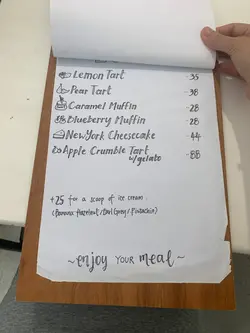 Lemon Tart - 35
Pear Tart - 38
Caramel Muffin - 28
Blueberry Muffin - 28
New York Cheesecake - 44
Apple Crumble Tart - 88
w/gelato
+25 for a scoop of ice cream
(Banana Hazelnut / Earl Grey / Pistachio)
~enjoy YOUR meal~